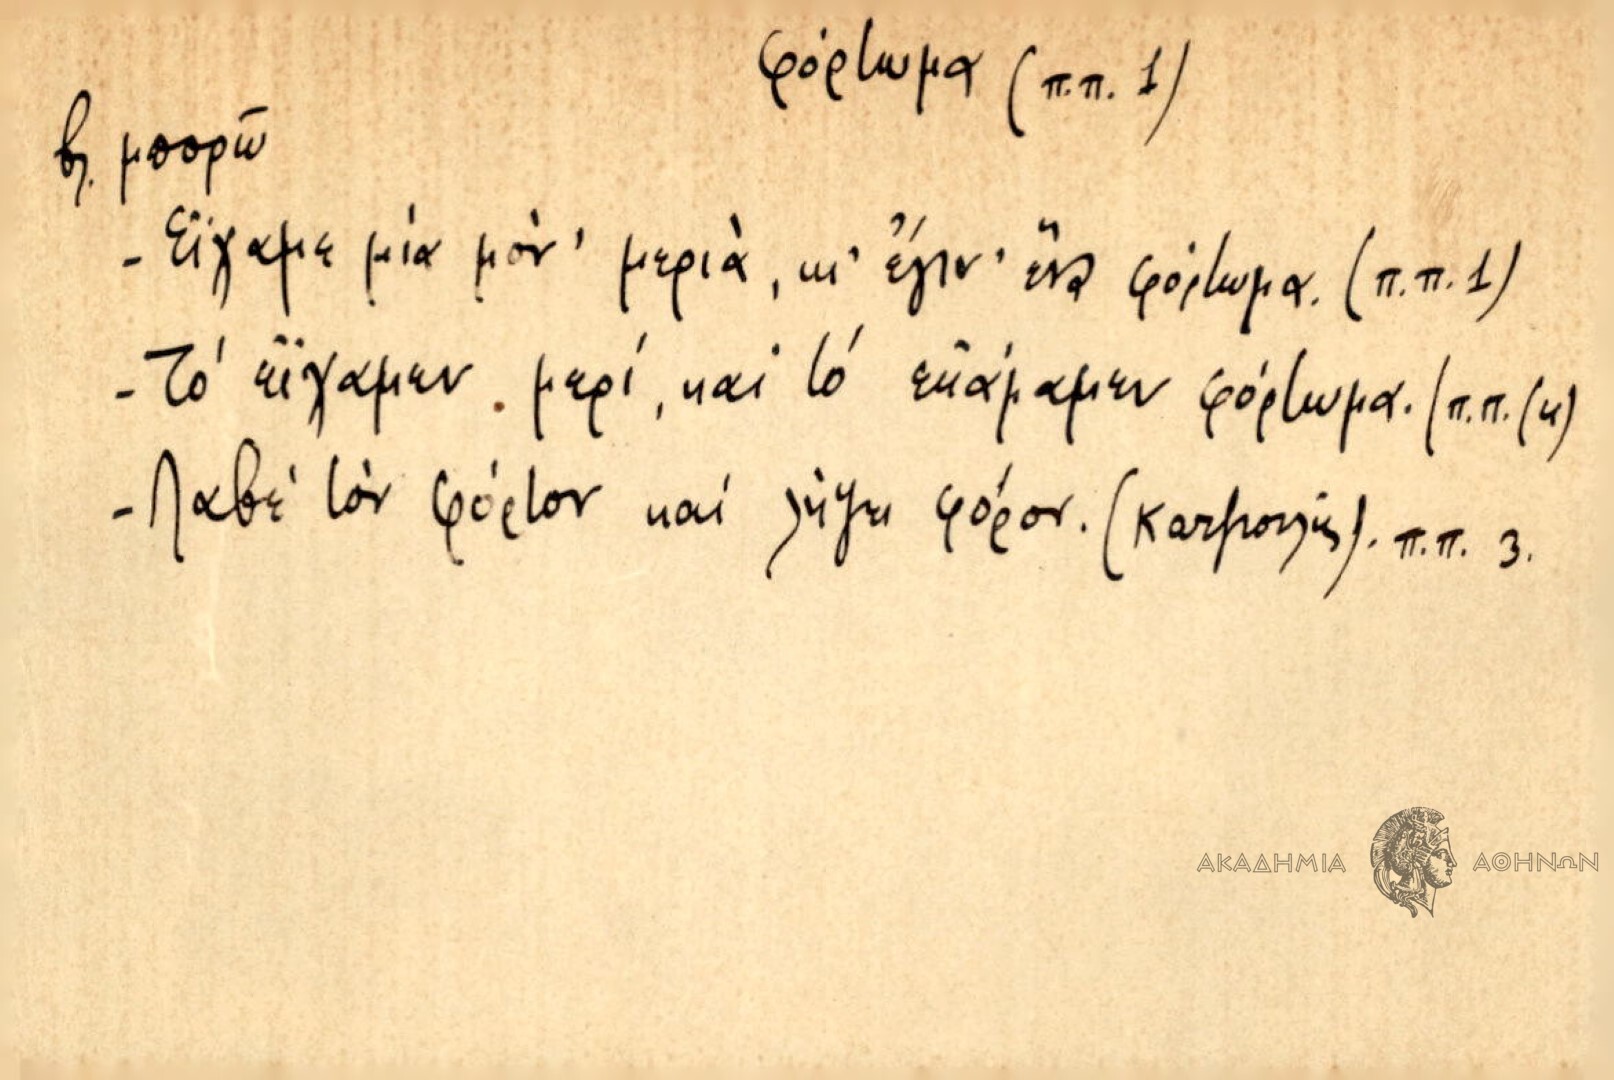 φόρτωμα (π.π. 1)
βλ. μπορῶ
- Εἴχαμε μία μόν' μεριὰ, κι' ἔγιν' ἕνα φόρτωμα. (π.π. 1)
- Τό εἴχαμεν μερί, καί τό εκάμαμεν φόρτωμα. (π.π. (κ)
- Λαβέ τὸν φόρτον καί λῆψει φόρον. π.π. 3.
ΑΚΑΔΗΜΙΑ ΑΘΗΝΩΝ